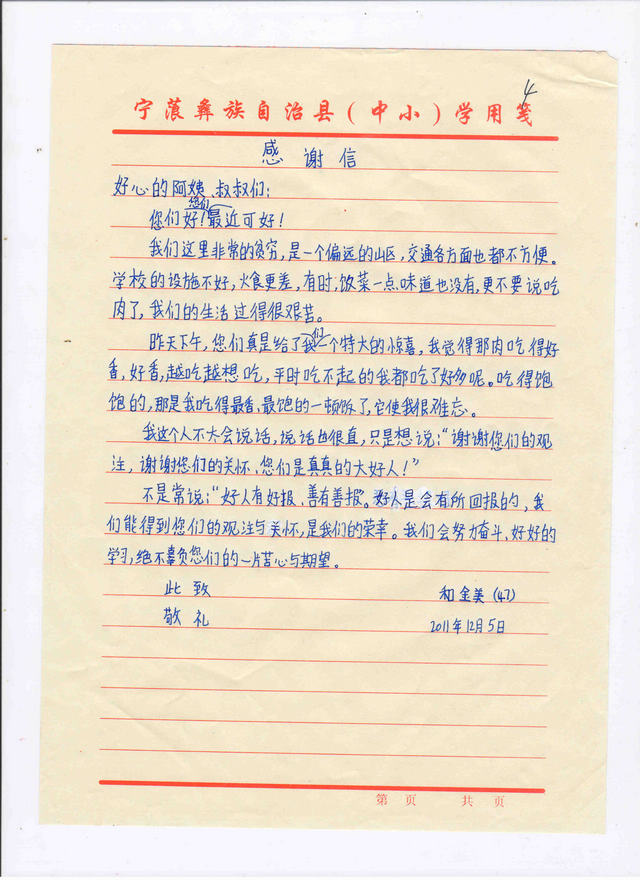 4
宁蒗彝族自治县(中小)学用笺
感谢信
好心的阿姨、叔叔们:
您们好!您们最近可好!
我们这里非常的贫穷,是一个偏远的山区,交通各方面也都不方便。
学校的设施不好,火食更差,有时,饭菜一点味道也没有,更不要说吃
肉了,我们的生活过得很艰苦。
昨天下午,您们真是给了我们一个特大的惊喜,我觉得那肉吃得好
香,好香,越吃越想吃,平时吃不起的我都吃了好多呢。吃得饱
饱的,那是我吃得最香、最饱的一顿饭了,它使我很难忘。
我这个人不大会说话,说话也很直,只是想说:“谢谢您们的观
注,谢谢您们的关怀、您们是真真的大好人!”
不是常说:“好人有好报、善有善报”。好人是会有所回报的,我
们能得到您们的观注与关怀,是我们的荣幸。我们会努力奋斗、好好的
学习,绝不辜负您们的一片苦心与期望。
此致 和金美(47)
敬礼 2011年12月5日
第 页 共 页